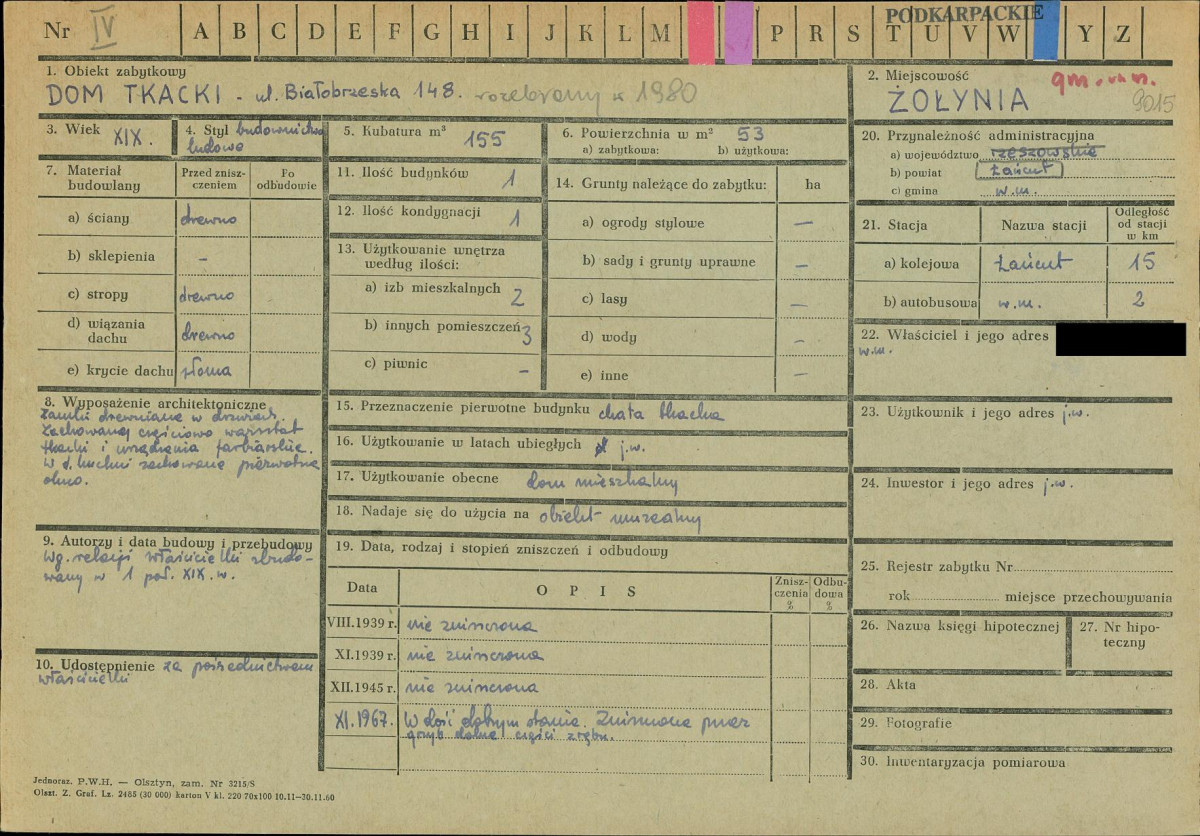 Nr IV A B C D E F G H I J K L M P R S T U V W Y Z
PODKARPACKIE
1. Obiekt zabytkowy
DOM TKACKI - ul. Białobrzeska 148. rozebrany w 1980
2. Miejscowość gm. w m.
ŻOŁYNIA 9015
3. Wiek XIX.
4. Styl budownictwo
ludowe
5. Kubatura m³ 155
6. Powierzchnia w m² 53
a) zabytkowa: b) użytkowa:
7. Materiał
budowlany
Przed znisz-
czeniem
Po
odbudowie
a) ściany drewno
b) sklepienia -
c) stropy drewno
d) wiązania
dachu drewno
e) krycie dachu słoma
11. Ilość budynków 1
12. Ilość kondygnacji 1
13. Użytkowanie wnętrza
według ilości:
a) izb mieszkalnych 2
b) innych pomieszczeń 3
c) piwnic -
14. Grunty należące do zabytku: ha
a) ogrody stylowe —
b) sady i grunty uprawne —
c) lasy —
d) wody —
e) inne —
20. Przynależność administracyjna
a) województwo rzeszowskie
b) powiat Łańcut
c) gmina w.m.
21. Stacja Nazwa stacji
Odległość
od stacji
w km
a) kolejowa Łańcut 15
b) autobusowa w.m. 2
22. Właściciel i jego adres
w.m.
8. Wyposażenie architektoniczne
Zamki drewniane w drzwiach.
Zachowany częściowo warsztat
tkacki i urządzenia farbiarskie.
W d. kuchni zachowane pierwotne
okno.
9. Autorzy i data budowy i przebudowy
Wg. relacji właścicielki zbudo-
wany w 1 poł. XIX. w.
10. Udostępnienie za pośrednictwem
właścicielki
15. Przeznaczenie pierwotne budynku chata tkacka
16. Użytkowanie w latach ubiegłych j.w.
17. Użytkowanie obecne dom mieszkalny
18. Nadaje się do użycia na obiekt muzealny
19. Data, rodzaj i stopień zniszczeń i odbudowy
Data OPIS
Znisz-
czenia
%
Odbu-
dowa
%
VIII.1939 r. nie zniszczona
XI.1939 r. nie zniszczona
XII.1945 r. nie zniszczona
XI.1967. W dość dobrym stanie. Zniszczone przez
grzyb dolne części zrębu.
23. Użytkownik i jego adres j.w.
24. Inwestor i jego adres j.w.
25. Rejestr zabytku Nr
rok miejsce przechowywania
26. Nazwa księgi hipotecznej
27. Nr hipo-
teczny
28. Akta
29. Fotografie
30. Inwentaryzacja pomiarowa
Jednoraz. P.W.H. — Olsztyn, zam. Nr 3215/S
Olszt. Z. Graf. Lz. 2485 (30 000) karton V kl. 220 70x100 10.11—30.11.60